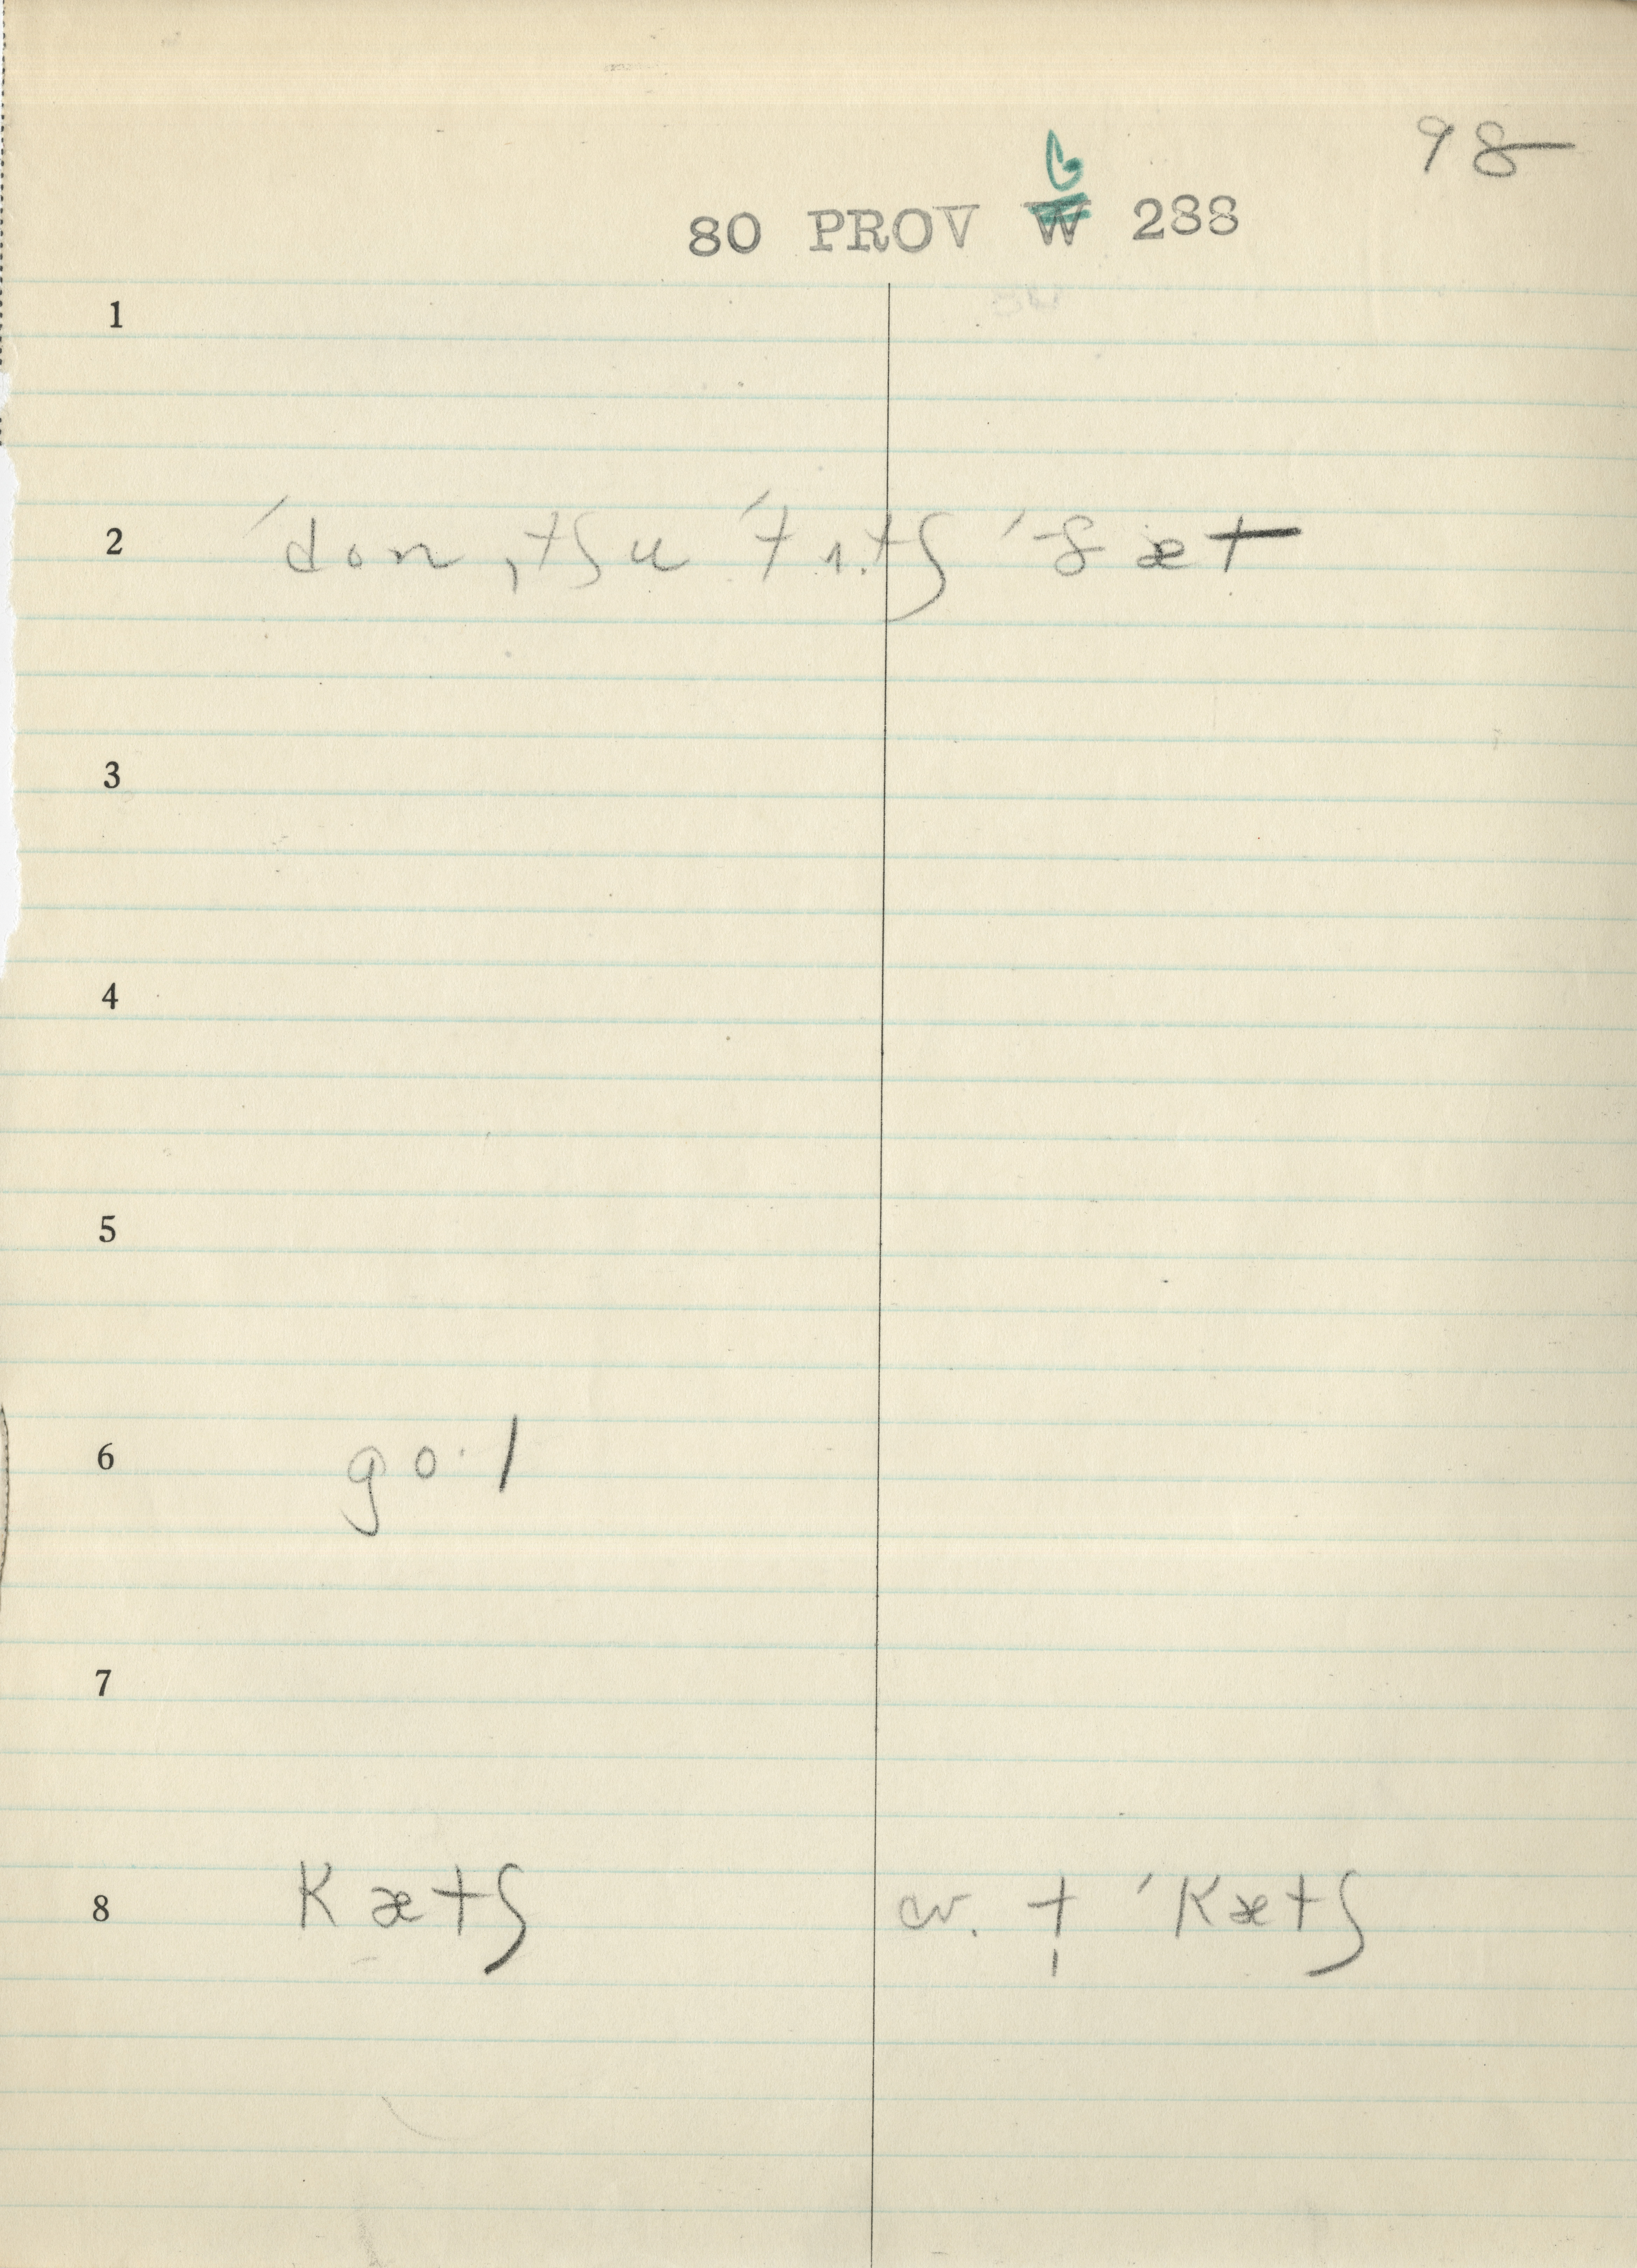 98
G
80 PROV W 288
1
2 ˈdon ˌtʃu ˈtʌ.tʃ ˈðæt
3
4
5
6 go·l
7
8 kætʃ cv. t̩ ˈkætʃ